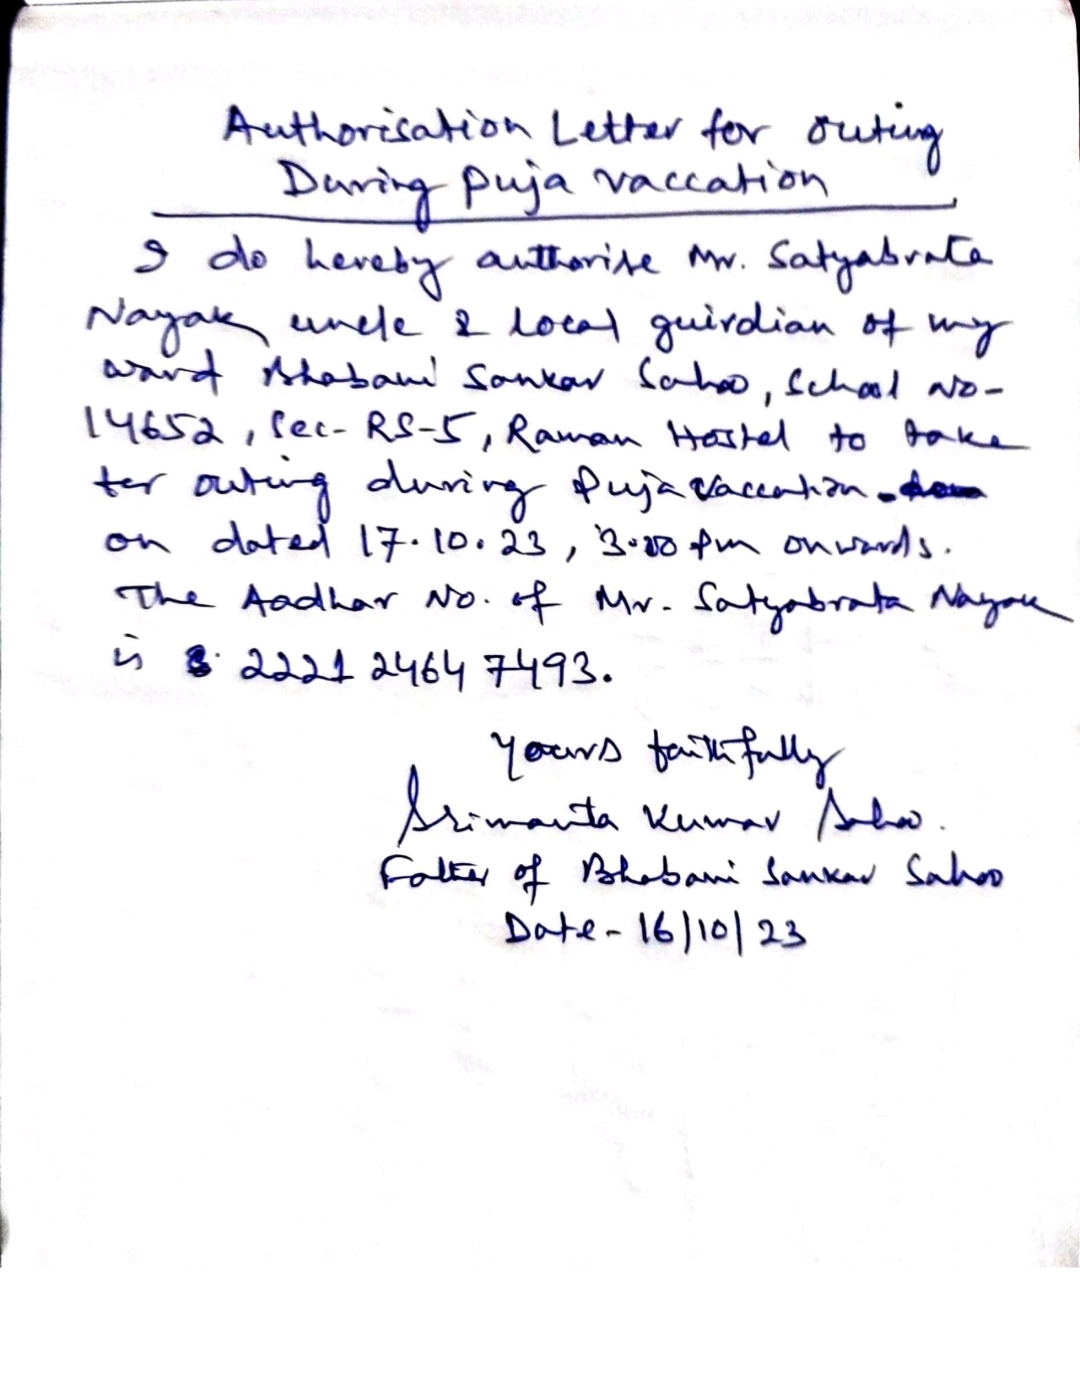 Authorisation Letter for outing
During puja vaccation
I do hereby authorise Mr. Satyabrata
Nayak, uncle & local guirdian of my
ward Bhabani Sankar Sahoo, School No-
14652, Sec- RS-5, Raman Hostel to take
for outing during Puja vaccation.
on dated 17.10.23, 3.00 pm onwards.
The Aadhar No. of Mr. Satyabrata Nayak
is 2221 2464 7493.
Yours faithfully
Srimanta Kumar Sahoo.
Father of Bhabani Sankar Sahoo
Date- 16/10/23